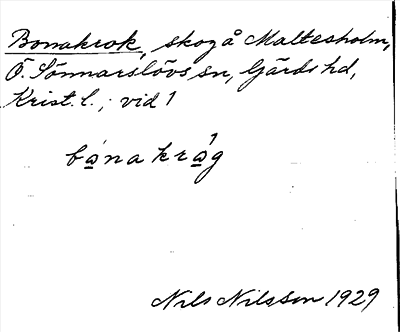 Bonakrok, skog å Maltesholm,
Ö. Sönnarslövs sn, Gärds hd,
Krist. l.; vid 1
bånakråg
Nils Nilsson 1929